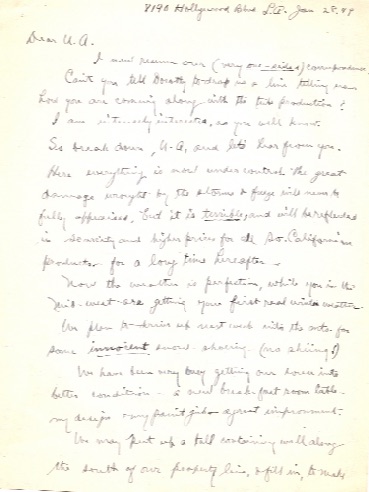 8190 Hollywood Blvd L.A. Jan 28. 49
Dear U.A.
I now resume our (very one-sided) correspondence.
Can't you tell Dorothy to drop us a line telling me
how you are coming along with the tube production?
I am intensely interested, as you well know.
So break down, U-A, and let's hear from you.
Here everything is now under control. The great
damage wrought by the storms & freeze will never be
fully appraised, but it is terrible, and will be reflected
in scarcity and higher prices for all So. California
products for a long time hereafter.
Now the weather is perfection, while you in the
Mid-west are getting your first real winter weather.
We plan to drive up next week into the
some innocent snow (no skiing!)
We have been very busy getting our house into
better condition - a new breakfast room table -
my design & my paint job - a great improvement.
We may put up a tall containing wall along
the south of our property line, & fill in, to make